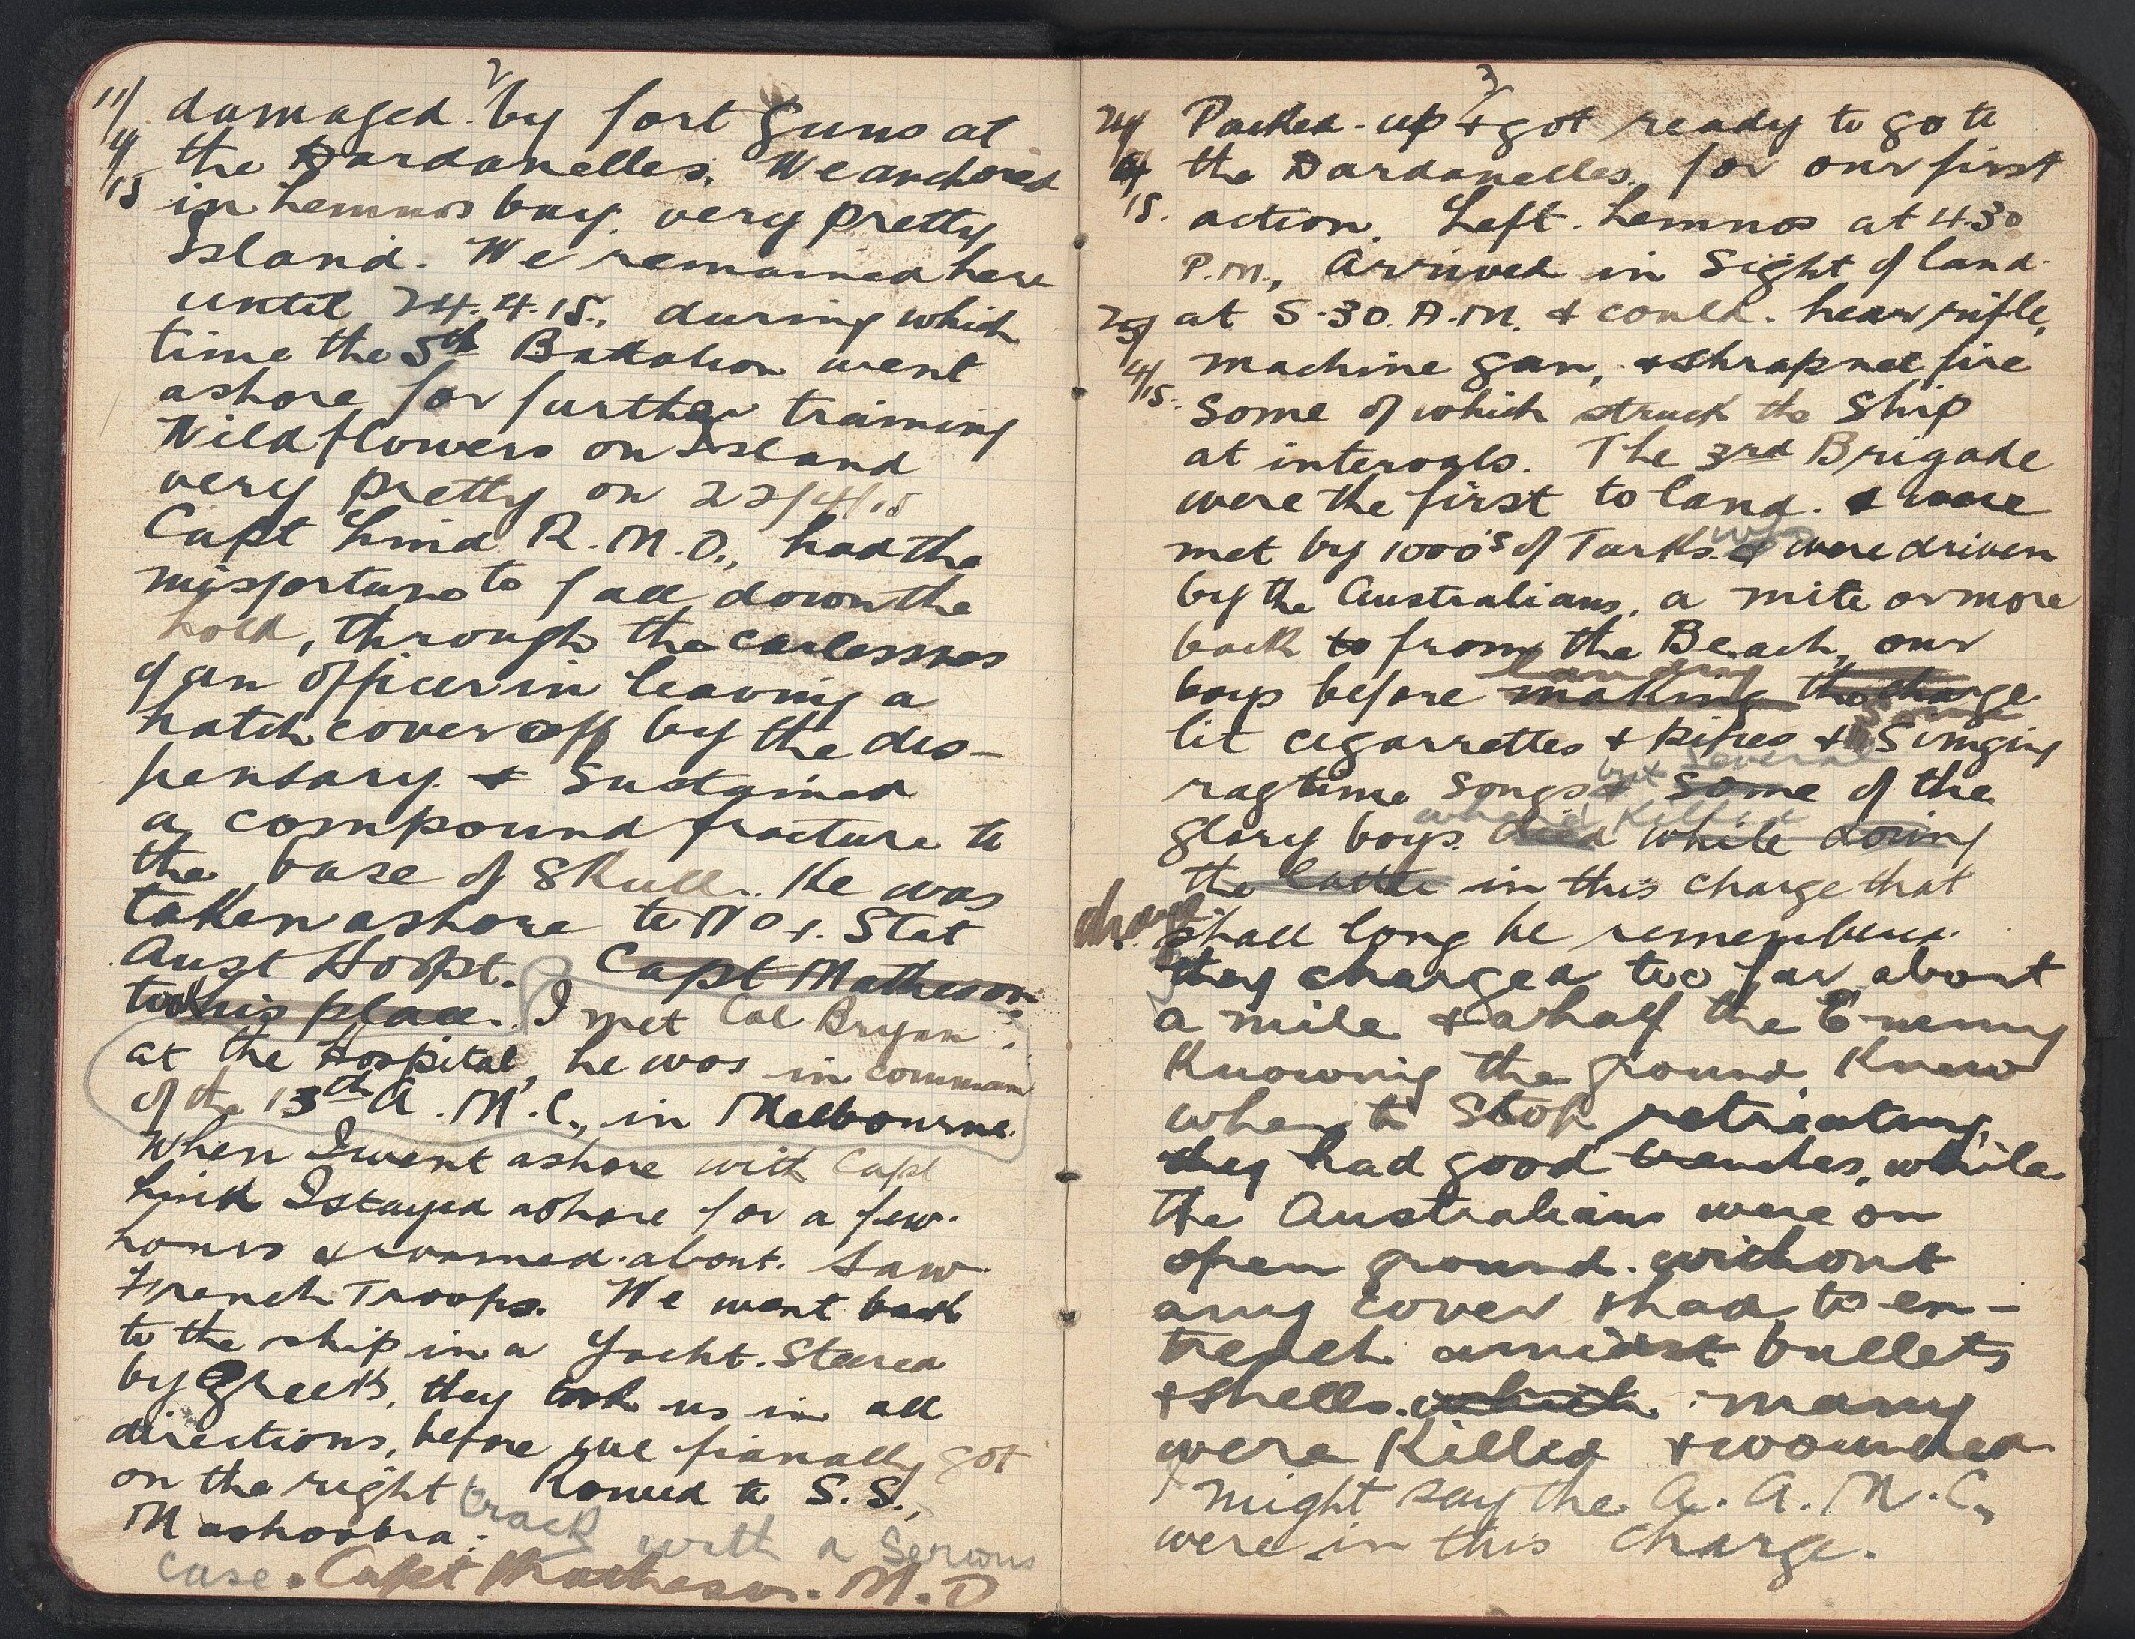 2
11/4/15 damaged by fort guns at
the Dardanelles. We anchored
in Lemnos bay. very pretty
Island. We remained here
until 24.4.15., during which
time the 5th Battalion went
ashore for further training
Wildflowers on Island
very pretty on 22/4/15
Capt Lind R.M.O., had the
misfortune to fall down the
hold, through the carlessnes
of an officer in leaving a
hatch cover off by the dis-
pensary & sustained
a compound fracture to
the base of skull. He was
taken ashore to No 1. Stat
Aust Hospt. Capt Matheson
took his place. I met Col Bryan
at the Hospital, he was in command
of the 13th A.M.C., in Melbourne.
When I went ashore with Capt
Lind I stayed ashore for a few
hours & roamed about. Saw
French Troops. We went back
to the ship in a yacht. Steered
by Greeks, they took us in all
directions, before we fianally got
on the right track Rowed to S.S.,
Mashoobra. with a serious
case. Capt Matheson. M.O
3
24/4/15. Packed up & got ready to go to
the Dardanelles. for our first
action. Left Lemnos at 4.30
P.M., Arrived in sight of land
25/4/15. at 5.30. A.M. & could hear rifle,
machine gun, & shrapnel fire
some of which struck the ship
at intervals. The 3rd Brigade
were the first to land. & were
met by 1000's of Turks. & who were driven
by the Australians, a mile or more
back to from the Beach, our
boys before making landing the charge
lit cigarrettes & Pipes & some Singing
ragtime songs & but several some of the
glory boys. died where killed while doing
the latter in this charge that
shall long be remembered.
they charged too far, about
a mile & a half the Enemy
knowing the ground knew
when to stop retreating,
they had good trenches, while
the Australians were on
open ground. without
any cover & had to en-
trench amidst bullets
& shells. which many
were killed & wounded
I might say the A.A.M.C.,
were in this charge.